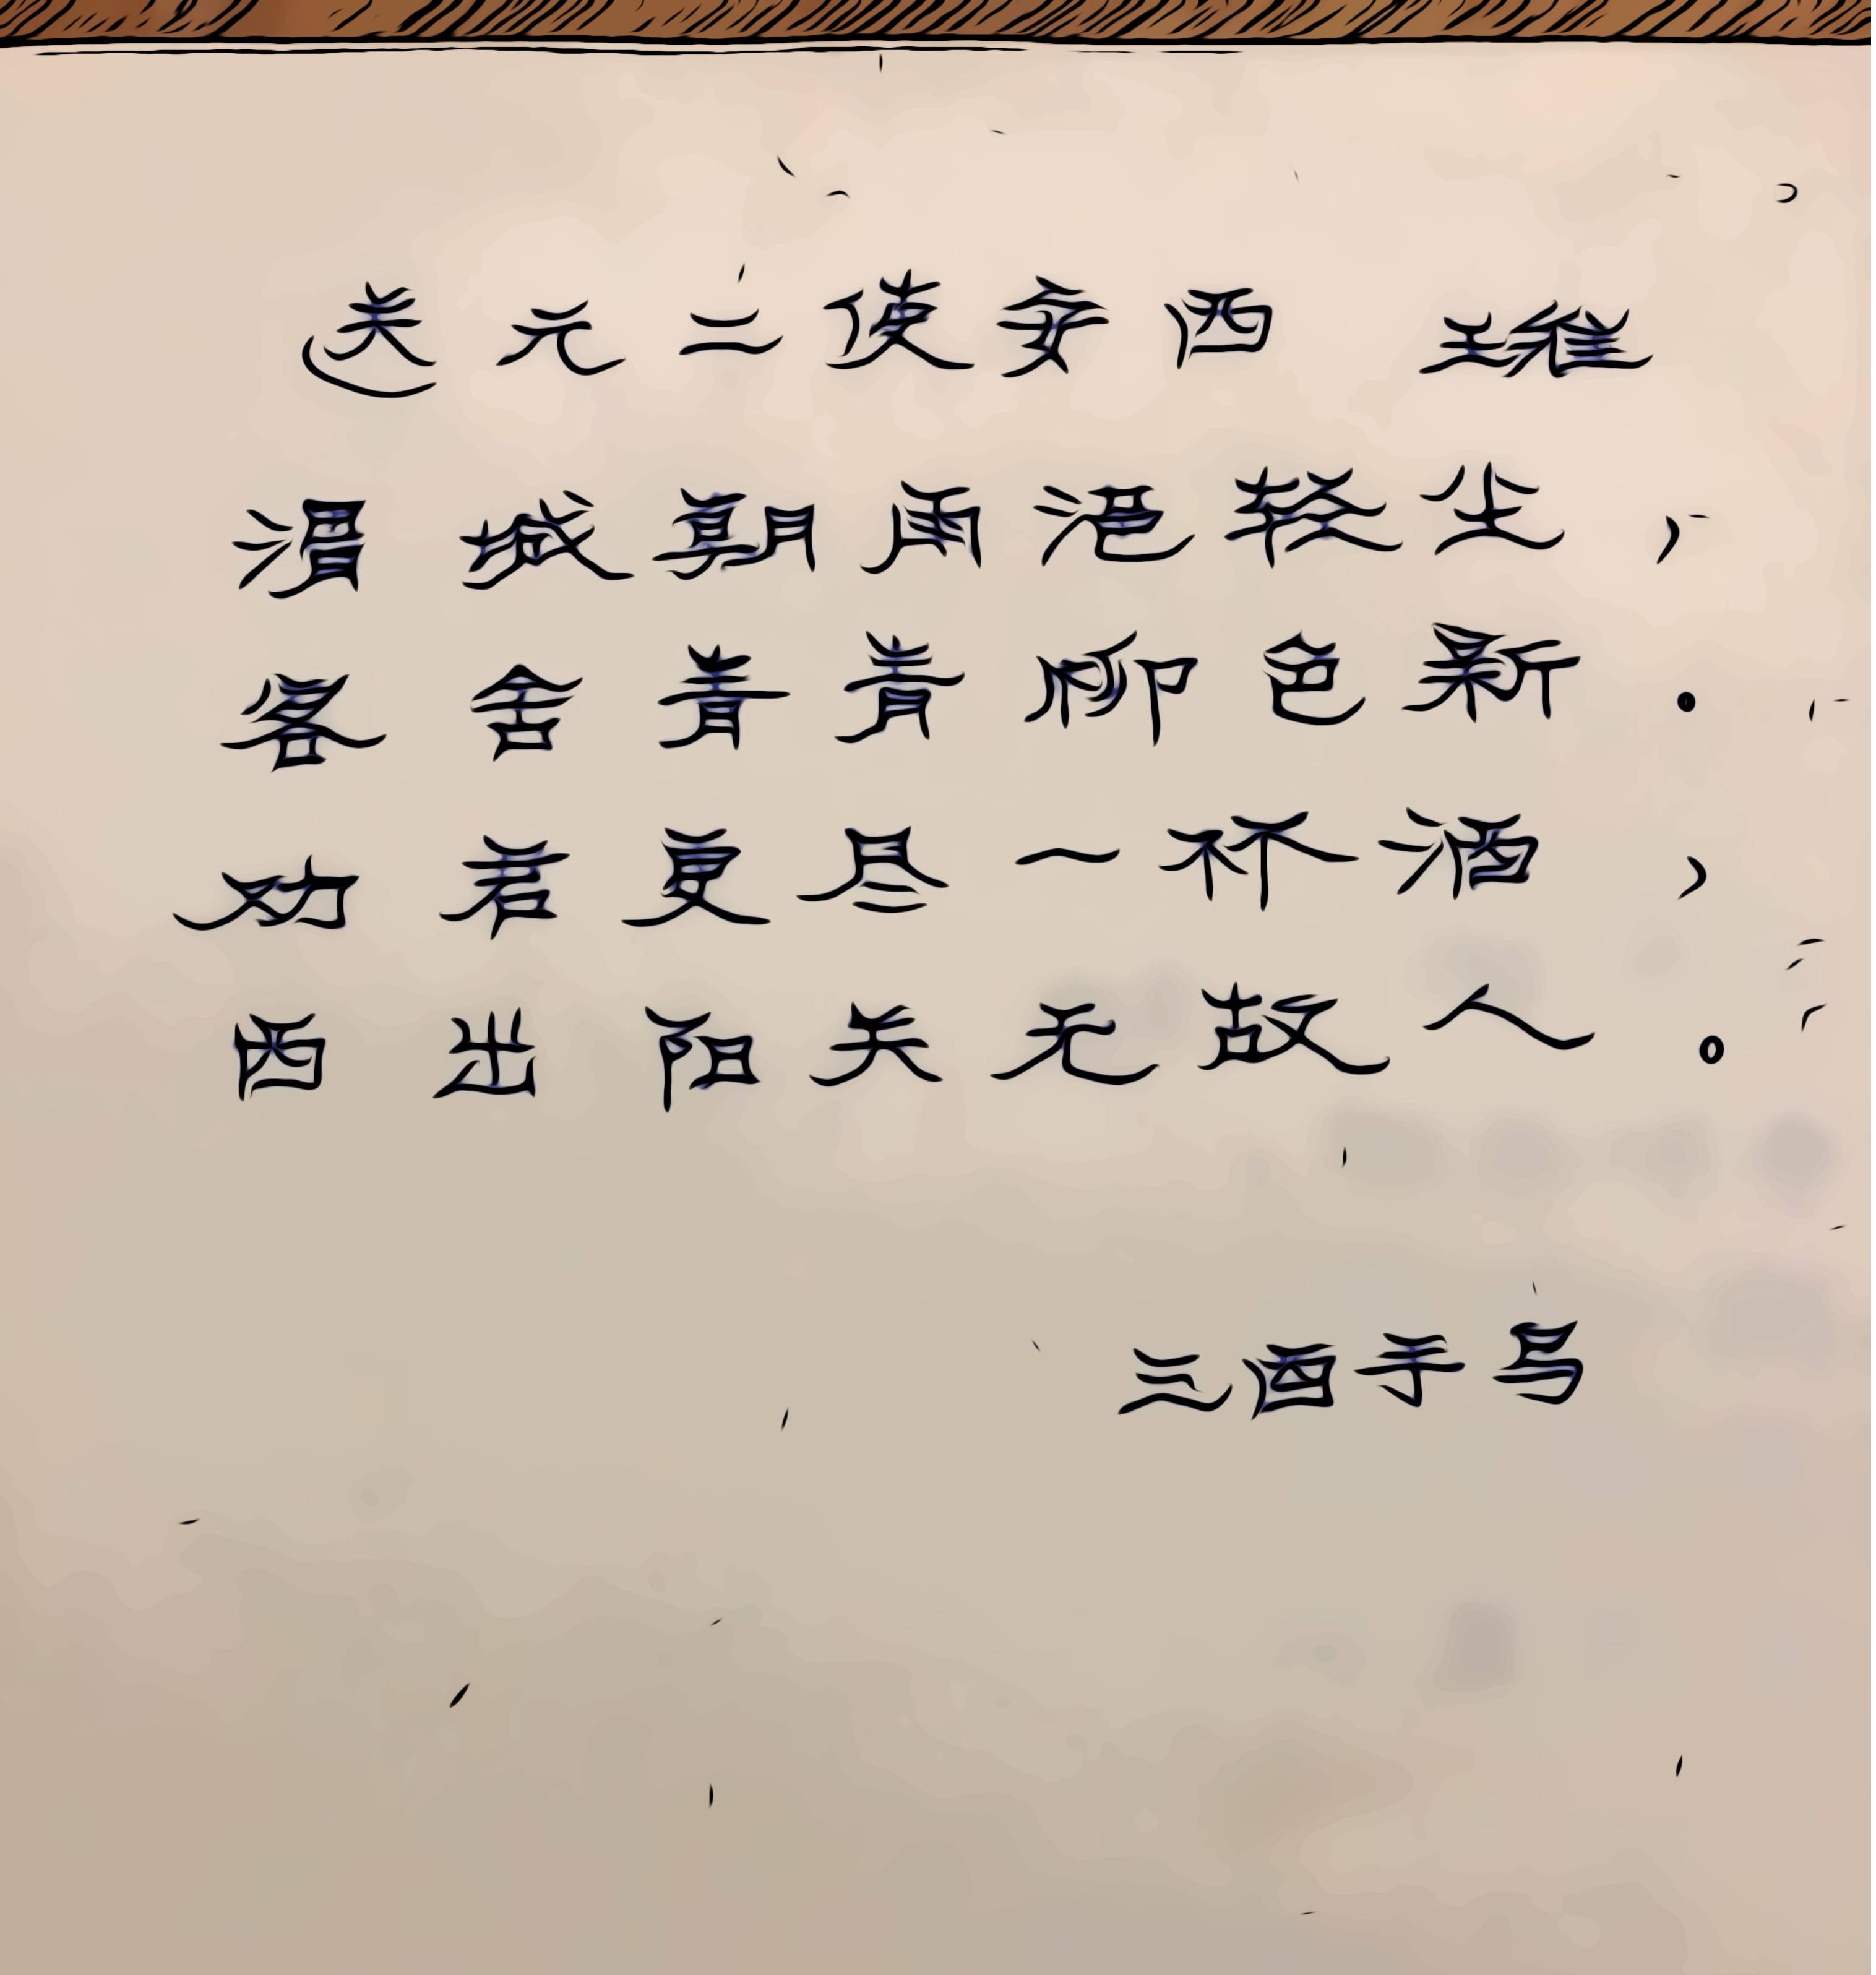 送元二使安西 王维
渭城朝雨浥轻尘，
客舍青青柳色新。
劝君更尽一杯酒，
西出阳关无故人。
三 手